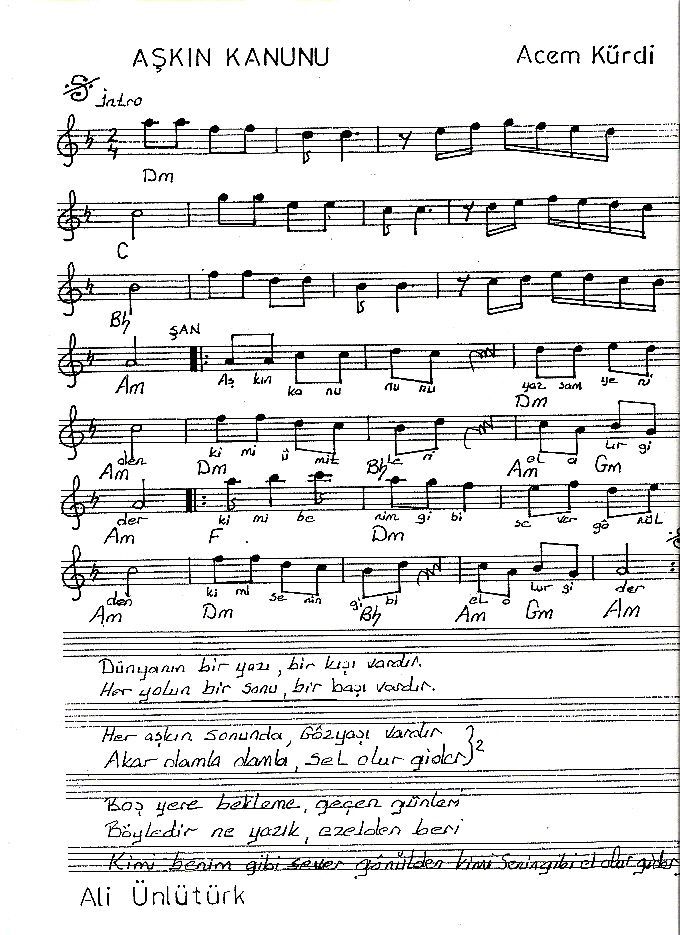 AŞKIN KANUNU
Acem Kürdi
İntro
2/4
Dm
C
Bb
ŞAN
Am
Aş kın ka nu nu nu yaz sam ye ni
Dm
den ki mi ü mit le ri el o lur gi
Am Dm Bb Am Gm
der ki mi be nim gi bi se ver gö nül
Am F Dm
den ki mi se nin gi bi el o lur gi der
Am Dm Bb Am Gm Am
Dünyanın bir yazı, bir kışı vardır.
Her yolun bir sonu, bir başı vardır.
Her aşkın sonunda, Gözyaşı vardır
Akar damla damla, sel olur gider }2
Boş yere bekleme, geçen günleri
Böyledir ne yazık, ezelden beri
Kimi benim gibi sever gönülden kimi Senin gibi el olur gider
Ali Ünlütürk